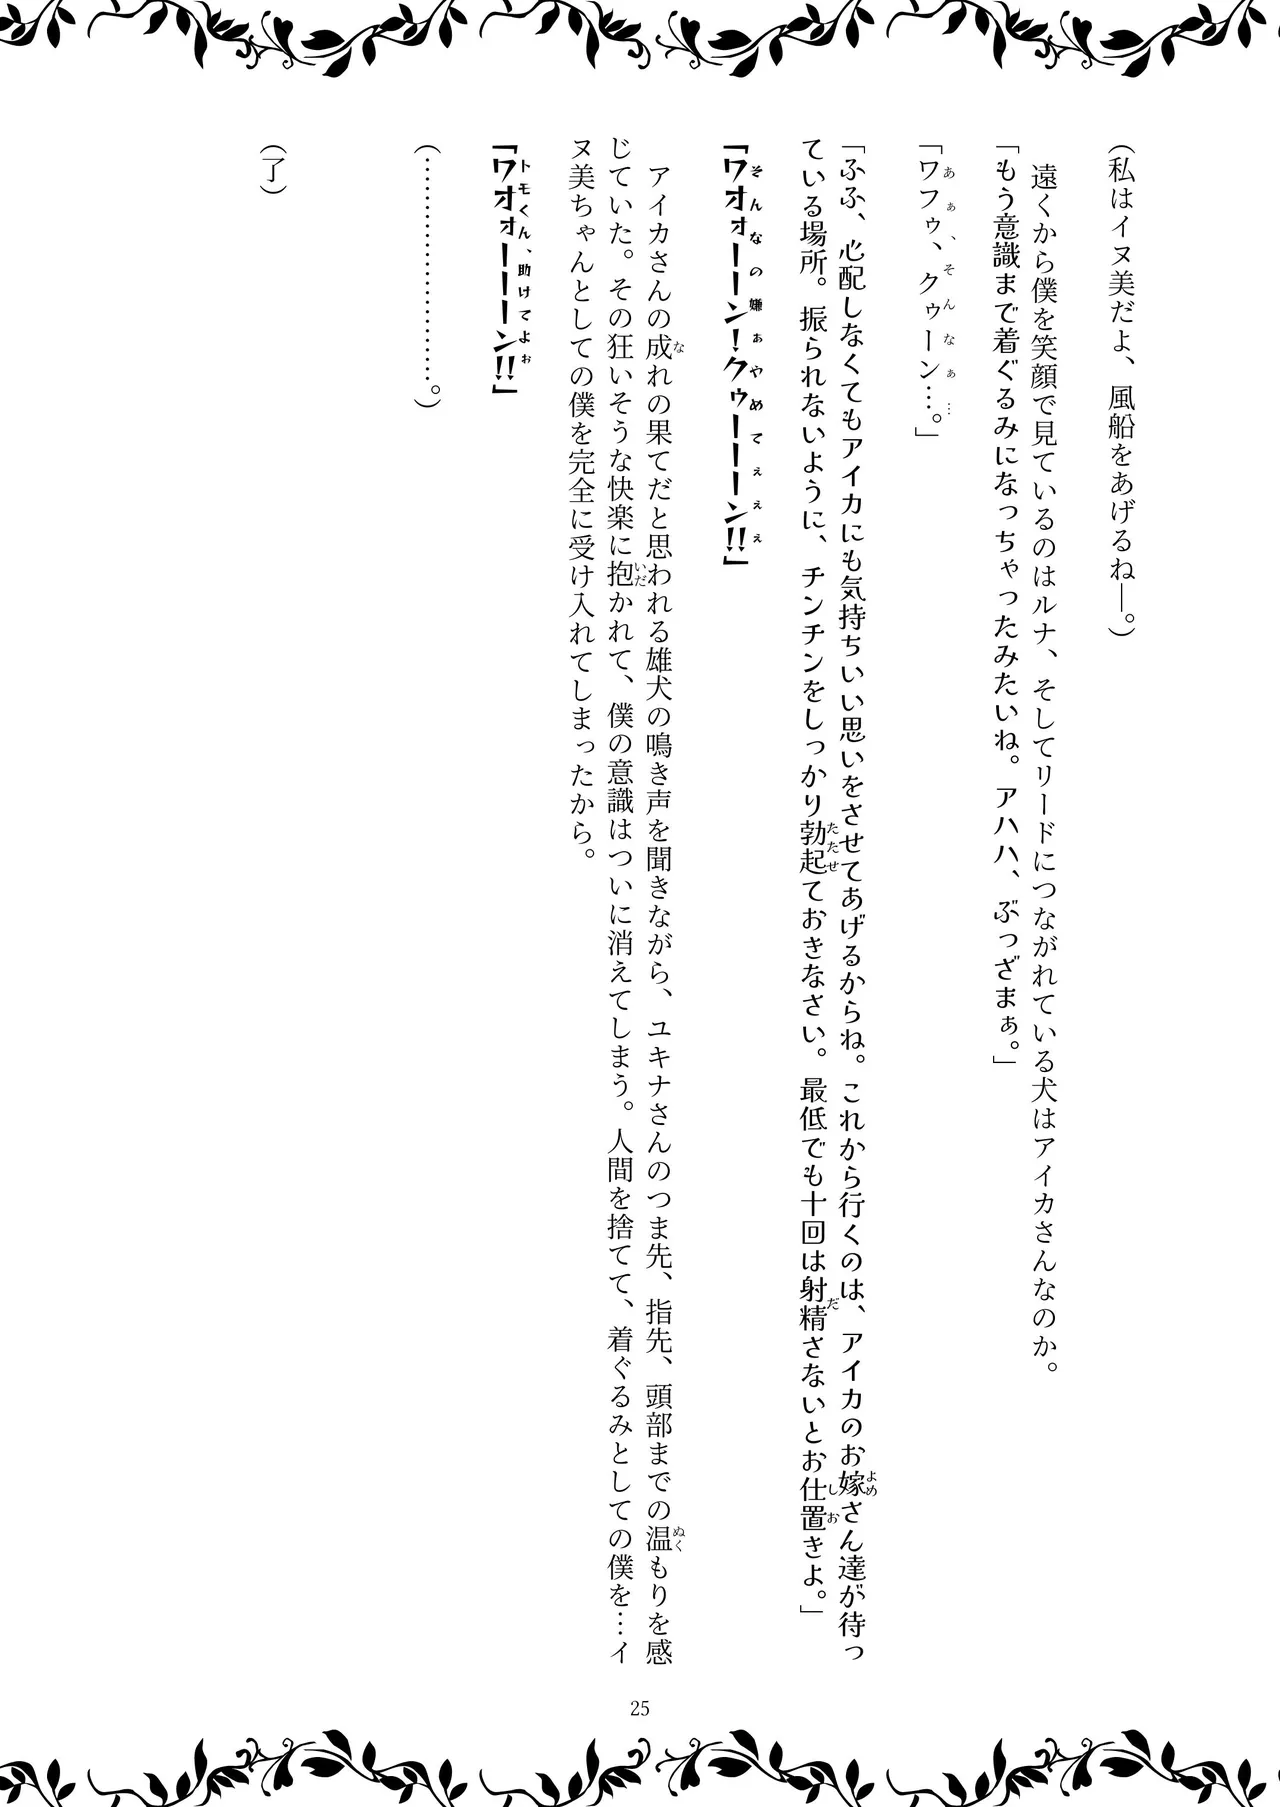 (私はイヌ美だよ、風船をあげるね―。)
遠くから僕を笑顔で見ているのはルナ、そしてリードにつながれている犬はアイカさんなのか。
「もう意識まで着ぐるみになっちゃったみたいね。アハハ、ぶっざまぁ。」
ああぁ、そんなぁ…
「ワフゥ、クゥーン…。」
「ふふ、心配しなくてもアイカにも気持ちいい思いをさせてあげるからね。これから行くのは、アイカのお嫁さん達が待っ
よめ
ている場所。振られないように、チンチンをしっかり勃起ておきなさい。最低でも十回は射精さないとお仕置きよ。」
たたせ
だ
しお
そんなの嫌ぁやめてぇぇぇ
「ワオォーーン!クゥーーーン!!」
アイカさんの成れの果てだと思われる雄犬の鳴き声を聞きながら、ユキナさんのつま先、指先、頭部までの温もりを感
な
ぬく
じていた。その狂いそうな快楽に抱かれて、僕の意識はついに消えてしまう。人間を捨てて、着ぐるみとしての僕を…イ
いだ
ヌ美ちゃんとしての僕を完全に受け入れてしまったから。
トモくん、助けてよぉ
「ワオォーーーン!!」
(………………………。)
(了)
25